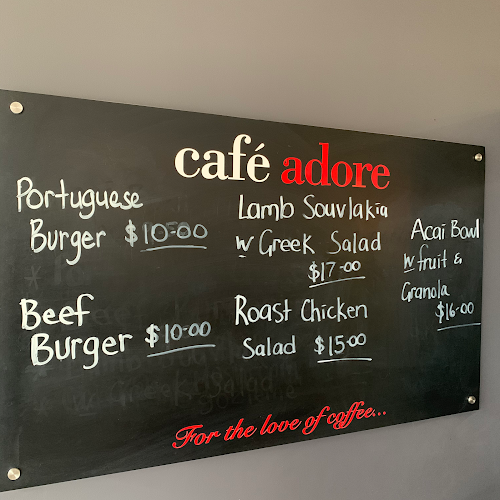 café adore
Portuguese
Burger $10-00
Beef
Burger $10-00
Lamb Souvlakia
w Greek Salad
$17-00
Roast Chicken
Salad $15-00
Acai Bowl
w fruit &
Granola
$16-00
For the love of coffee...